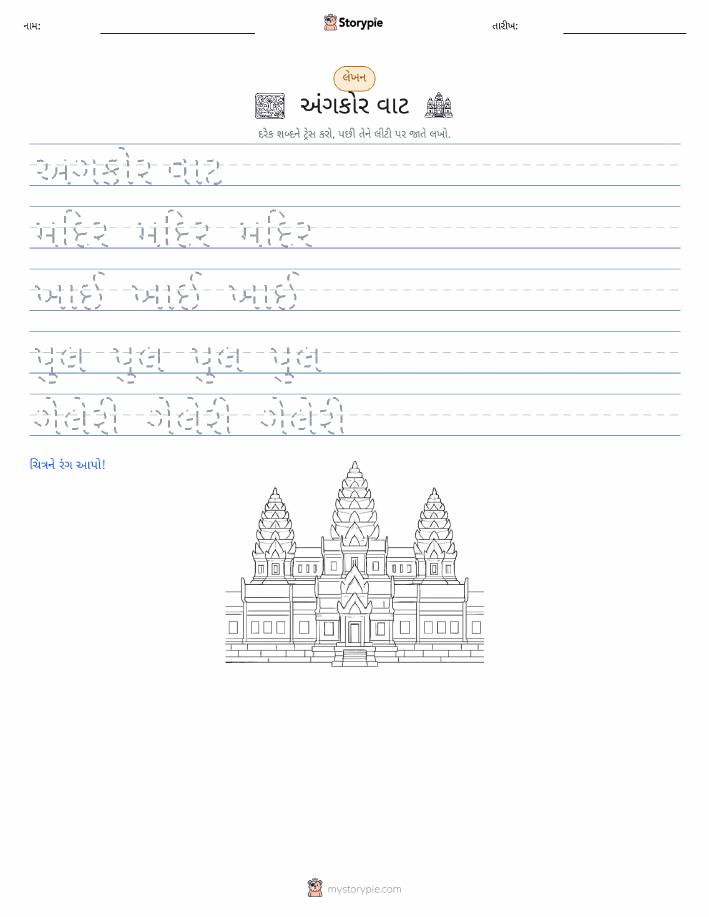 નામ:
Storypie
તારીખ:
લેખન
અંગકોર વાટ
દરેક શબ્દને ટ્રેસ કરો, પછી તેને લીટી પર જાતે લખો.
અંગકોર વાટ
મંદિર મંદિર મંદિર
ખાઈ ખાઈ ખાઈ
પુલ પુલ પુલ પુલ
ગેલેરી ગેલેરી ગેલેરી
ચિત્રને રંગ આપો!
mystorypie.com